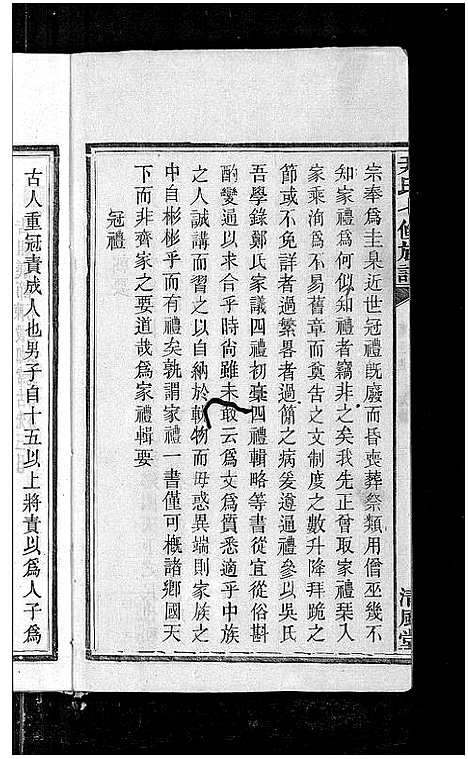 尹氏七修族譜
清風堂
宗奉爲圭臬近世冠禮旣廢而昏喪葬祭類用僧巫幾不
知家禮爲何似知禮者竊非之矣我先正曾取家禮栞入
家乘洵爲不易舊章而奠告之文制度之數升降拜跪之
節或不免詳者過繁畧者過簡之病爰遵通禮參以吳氏
吾學錄鄭氏家議四禮初藁四禮輯略等書從宜從俗斟
酌變通以求合乎時尙雖未敢云爲文爲質悉適乎中族
之人誠講而習之以自納於軌物而毋惑異端則家族之
中自彬彬乎而有禮矣孰謂家禮一書僅可概諸鄕國天
下而非齊家之要道哉爲家禮輯要
冠禮
古人重冠責成人也男子自十五以上將責以爲人子爲